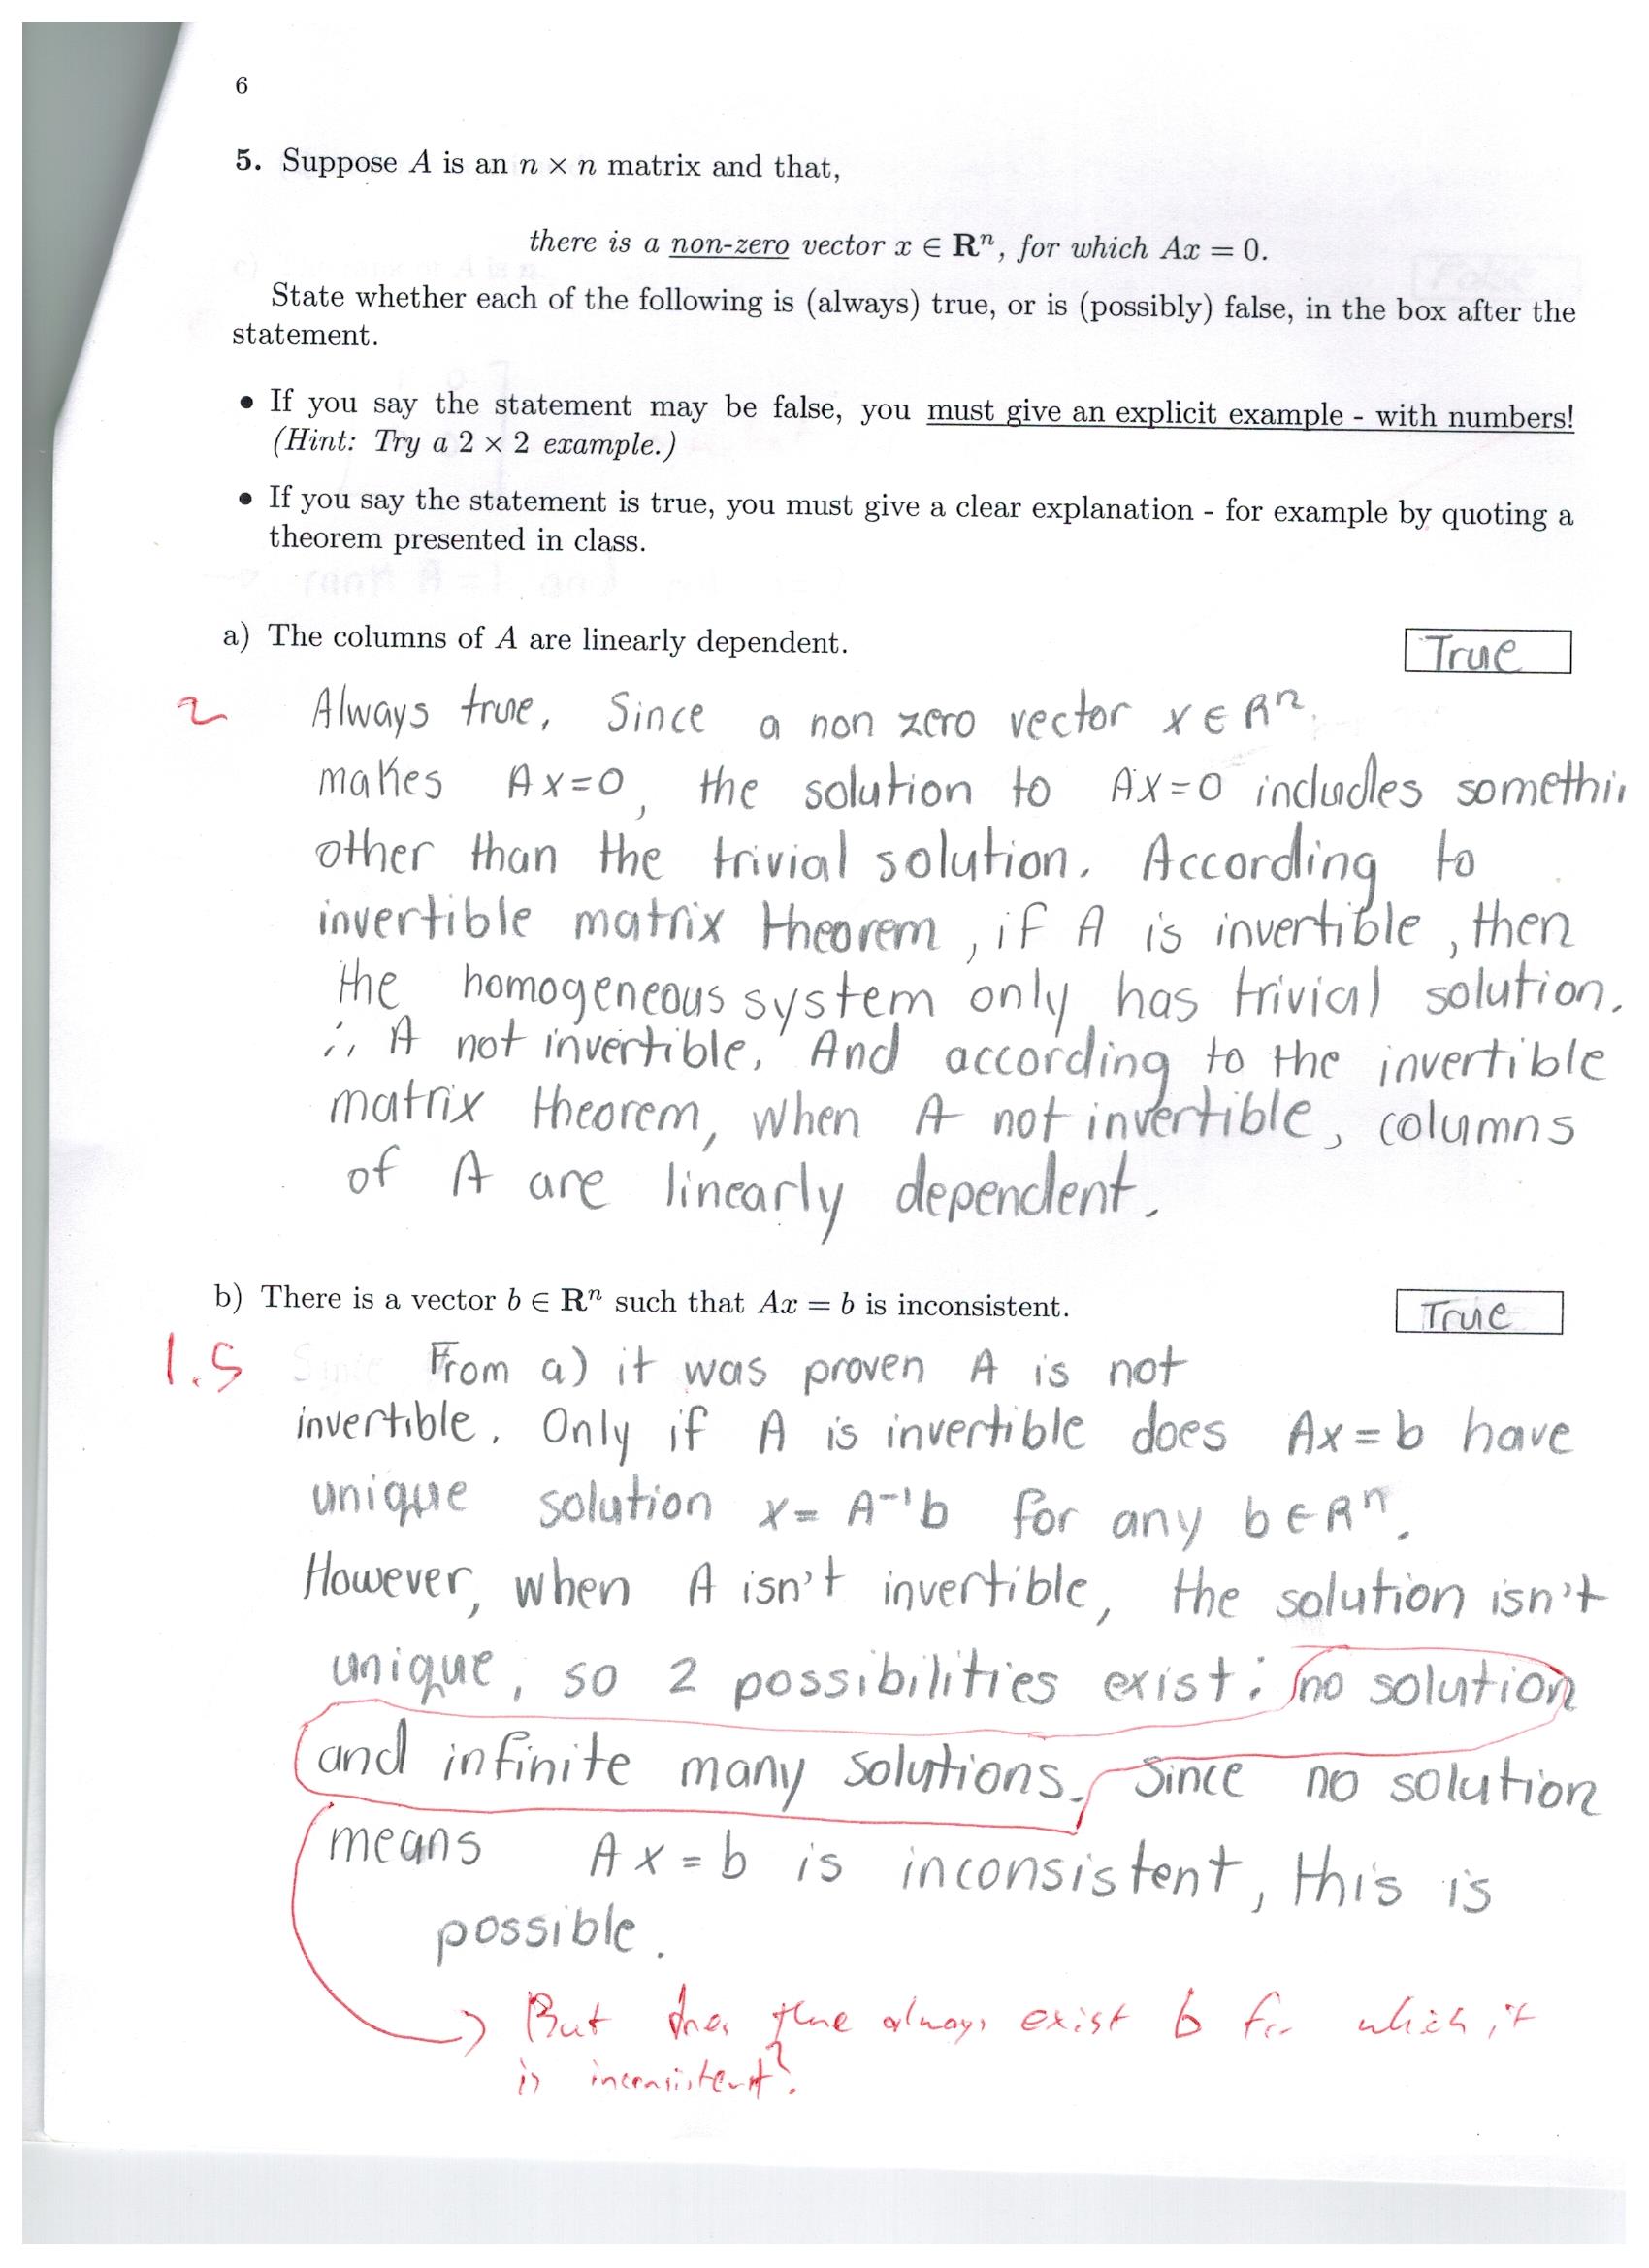 6
5. Suppose A is an n × n matrix and that,
there is a non-zero vector x ∈ Rⁿ, for which Ax = 0.
State whether each of the following is (always) true, or is (possibly) false, in the box after the
statement.
• If you say the statement may be false, you must give an explicit example - with numbers!
(Hint: Try a 2 × 2 example.)
• If you say the statement is true, you must give a clear explanation - for example by quoting a
theorem presented in class.
a) The columns of A are linearly dependent. True
2 Always true. Since a non zero vector x ∈ Rⁿ
makes Ax=0, the solution to Ax=0 includes somethi
other than the trivial solution. According to
invertible matrix theorem, if A is invertible, then
the homogeneous system only has trivial solution.
∴ A not invertible. And according to the invertible
matrix theorem, when A not invertible, columns
of A are linearly dependent.
b) There is a vector b ∈ Rⁿ such that Ax = b is inconsistent. True
1.5 From a) it was proven A is not
invertible. Only if A is invertible does Ax = b have
unique solution x = A⁻¹b for any b ∈ Rⁿ.
However, when A isn't invertible, the solution isn't
unique, so 2 possibilities exist: no solution
and infinite many solutions. Since no solution
means Ax = b is inconsistent, this is
possible.
→ But does there always exist b for which it
is inconsistent?